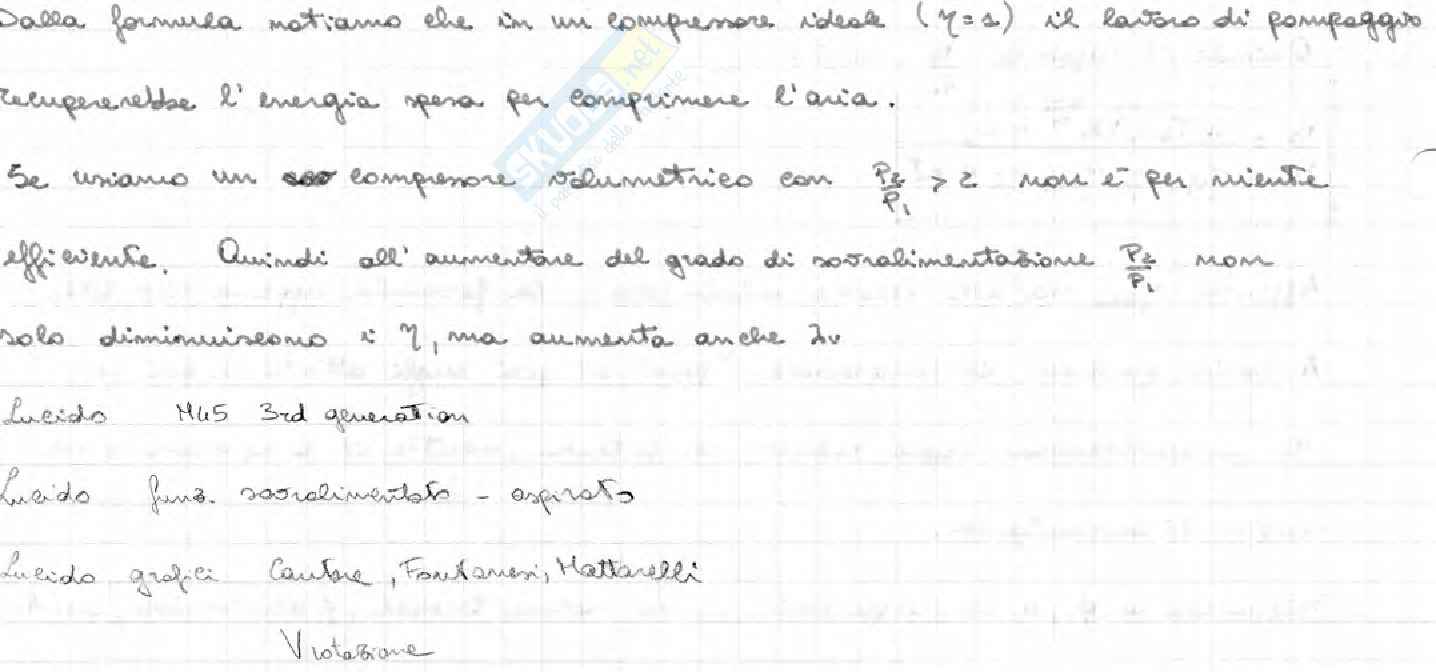 Dalla formula notiamo che in un compressore ideale (η=1) il lavoro di pompaggio
recupererebbe l'energia spesa per comprimere l'aria.
Se usiamo un compressore volumetrico con P2/P1 > 2 non è per niente
efficiente. Quindi all'aumentare del grado di sovralimentazione P2/P1 non
solo diminuiscono i η, ma aumenta anche λv
Lucido M45 3rd generation
Lucido funz. sovralimentato - aspirato
Lucido grafici Cantore, Fontanesi, Mattarelli
V rotazione
SKUOLA.net
il paradiso dello studente